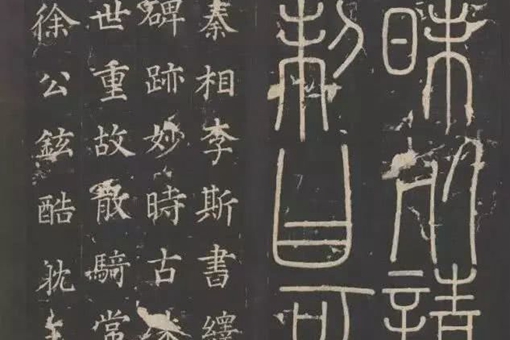 昧死請
制曰可
秦相李斯書繹
碑跡妙時古殊
世重故散騎常
徐公鉉酷躭